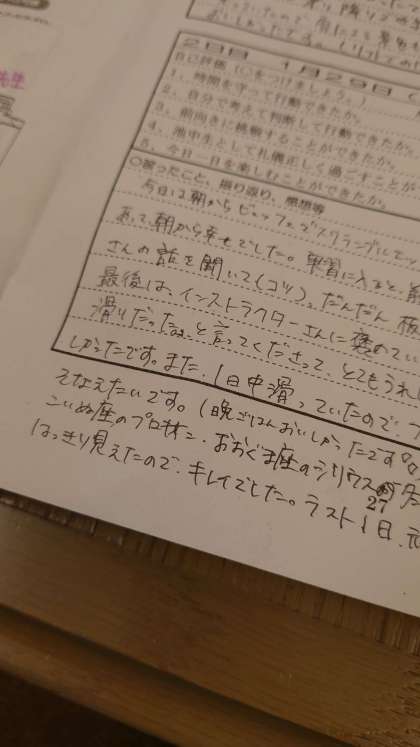 先生
2日目 1月29日(
自己評価(○をつけましょう。)
1、時間を守って行動できたか。
2、自分で考えて判断して行動できたか。
3、前向きに挑戦することができたか。
4、池中生として礼儀正しく過ごすことが
5、今日一日を楽しむことができたか。
○習ったこと、振り返り、感想等
今日は朝からビュッフェでスクランブルエッ
あって、朝から幸せでした。実習に入ると、前
さんの話を聞いて(コツ)、だんだん 板
最後は、インストラクターさんに褒めてい
滑りだったよ、と言ってくださって、とてもうれ
しかったです。また、1日中滑っていたので、
そなえたいです。(晩ごはんおいしかったです
こいぬ座のプロキオン、おおぐま座のシリウス
はっきり見えたので、キレイでした。ラスト1日、
27